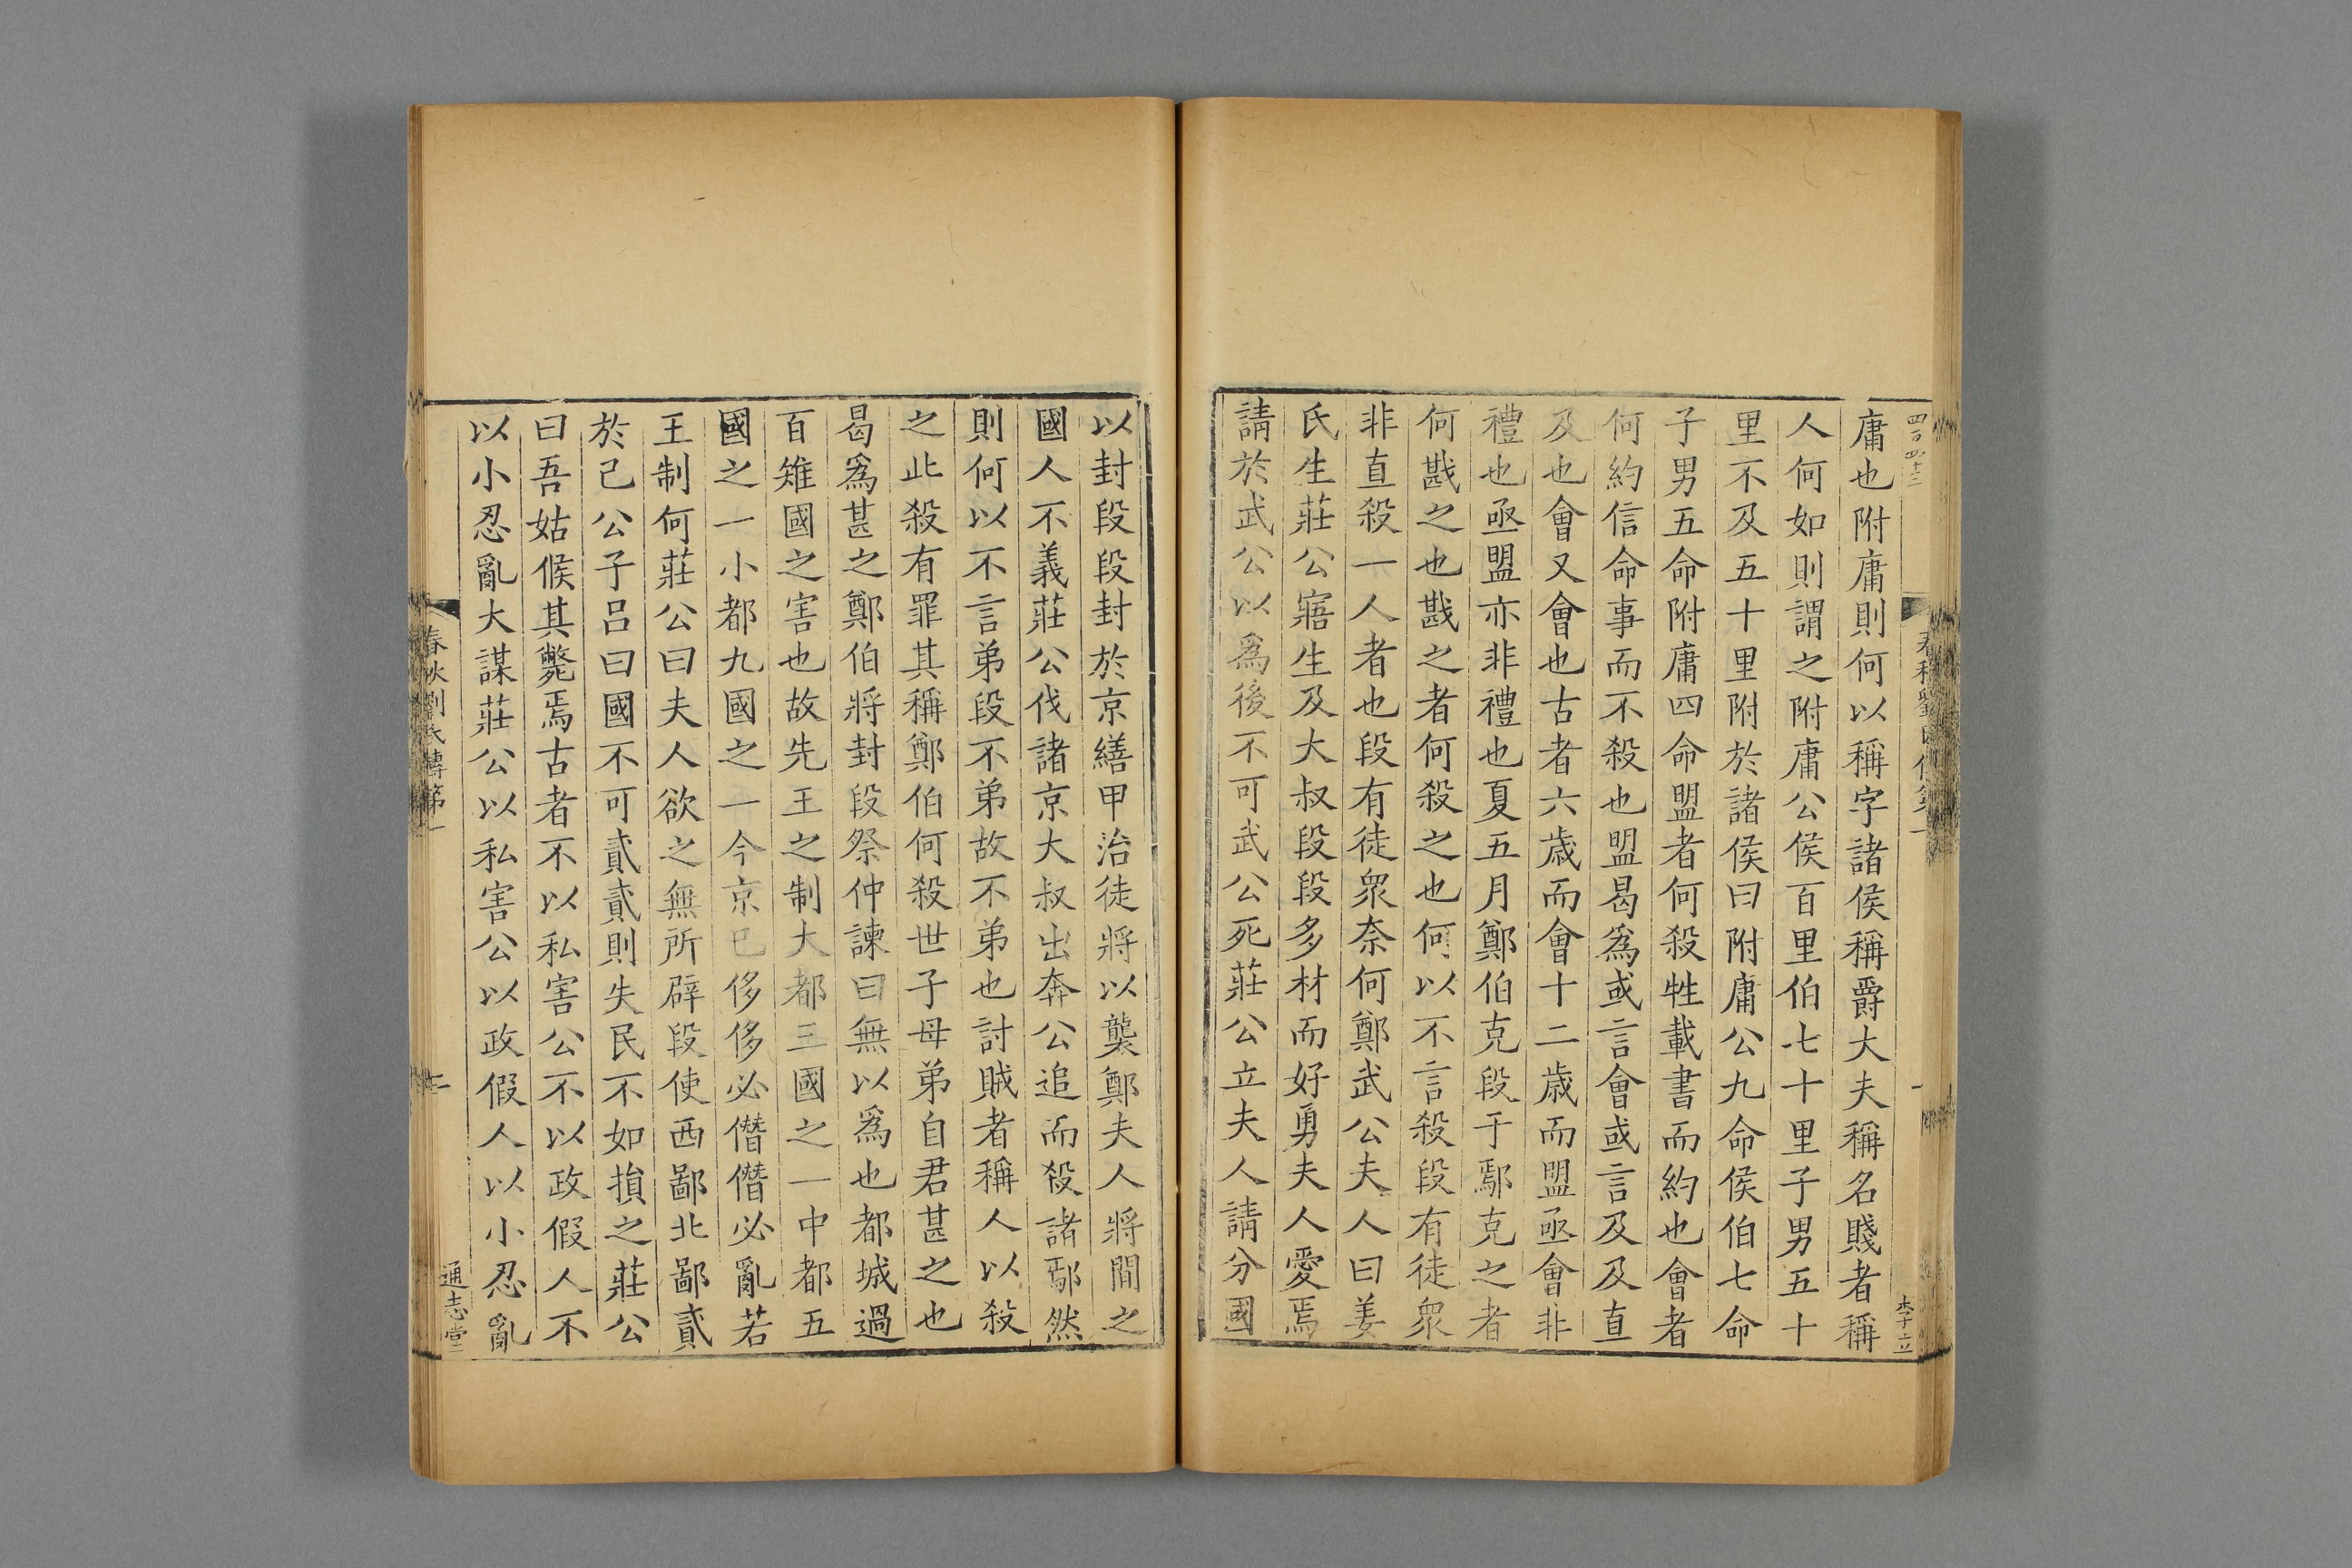 四百四十三
庸也附庸則何以稱字諸侯稱爵大夫稱名賤者稱
人何如則謂之附庸公侯百里伯七十里子男五十
里不及五十里附於諸侯曰附庸公九命侯伯七命
子男五命附庸四命盟者何殺牲載書而約也會者
何約信命事而不殺也盟曷爲或言會或言及及直
及也會又會也古者六歲而會十二歲而盟亟會非
禮也亟盟亦非禮也夏五月鄭伯克段于鄢克之者
何戡之也戡之者何殺之也何以不言殺段有徒衆
非直殺一人者也段有徒衆奈何鄭武公夫人曰姜
氏生莊公寤生及大叔段段多材而好勇夫人愛焉
請於武公以爲後不可武公死莊公立夫人請分國
李立
以封段段封於京繕甲治徒將以襲鄭夫人將間之
國人不義莊公伐諸京大叔出奔公追而殺諸鄢然
則何以不言弟段不弟故不弟也討賊者稱人以殺
之此殺有罪其稱鄭伯何殺世子母弟自君甚之也
曷爲甚之鄭伯將封段祭仲諫曰無以爲也都城過
百雉國之害也故先王之制大都三國之一中都五
國之一小都九國之一今京已侈侈必僭僭必亂若
王制何莊公曰夫人欲之無所辟段使西鄙北鄙貳
於己公子呂曰國不可貳貳則失民不如損之莊公
曰吾姑候其斃焉古者不以私害公不以政假人不
以小忍亂大謀莊公以私害公以政假人以小忍亂
春秋劉氏傳第一
通志堂